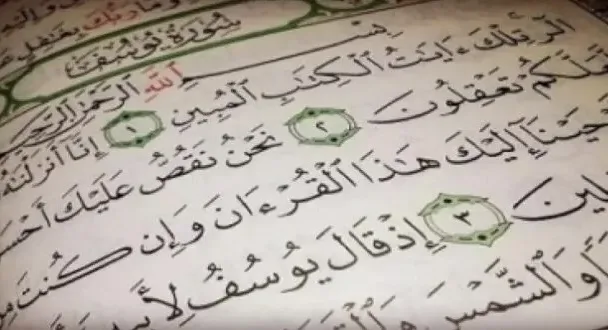 وَمَا رَبُّكَ بِغَٰفِلٍ
سُورَةُ يُوسُفَ
بِسْمِ اللَّهِ الرَّحْمَٰنِ الرَّحِيمِ
الٓر تِلْكَ ءَايَٰتُ الْكِتَٰبِ الْمُبِينِ ١ إِنَّا أَنزَلْنَٰهُ
لَّعَلَّكُمْ تَعْقِلُونَ ٢ نَحْنُ نَقُصُّ عَلَيْكَ أَحْسَ
حَيْنَا إِلَيْكَ هَٰذَا الْقُرْءَانَ وَإِن كُنتَ مِن
لِينَ ٣ إِذْ قَالَ يُوسُفُ لِأَبِيهِ
وَالشَّمْسَ